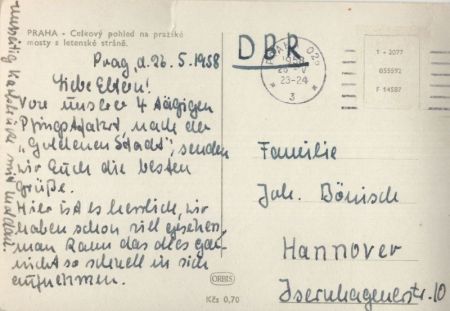 PRAHA - Celkový pohled na pražské
mosty z letenské stráně.
Prag, d. 26. 5. 1958
Liebe Eltern!
Von unserer 4 tägigen
Pfingstfahrt, nach der
„Goldenen Stadt", senden
wir Euch die besten
Grüße.
Hier ist es herrlich, wir
haben schon viel gesehen,
man kann das alles gar
nicht so schnell in sich
aufnehmen.
DBR
PRAHA 025
1958
26 V
23-24
3
T - 2077
055592
F 14587
Familie
Joh. Bönisch
Hannover
Isernhagenerstr. 10
ORBIS
Kčs 0,70